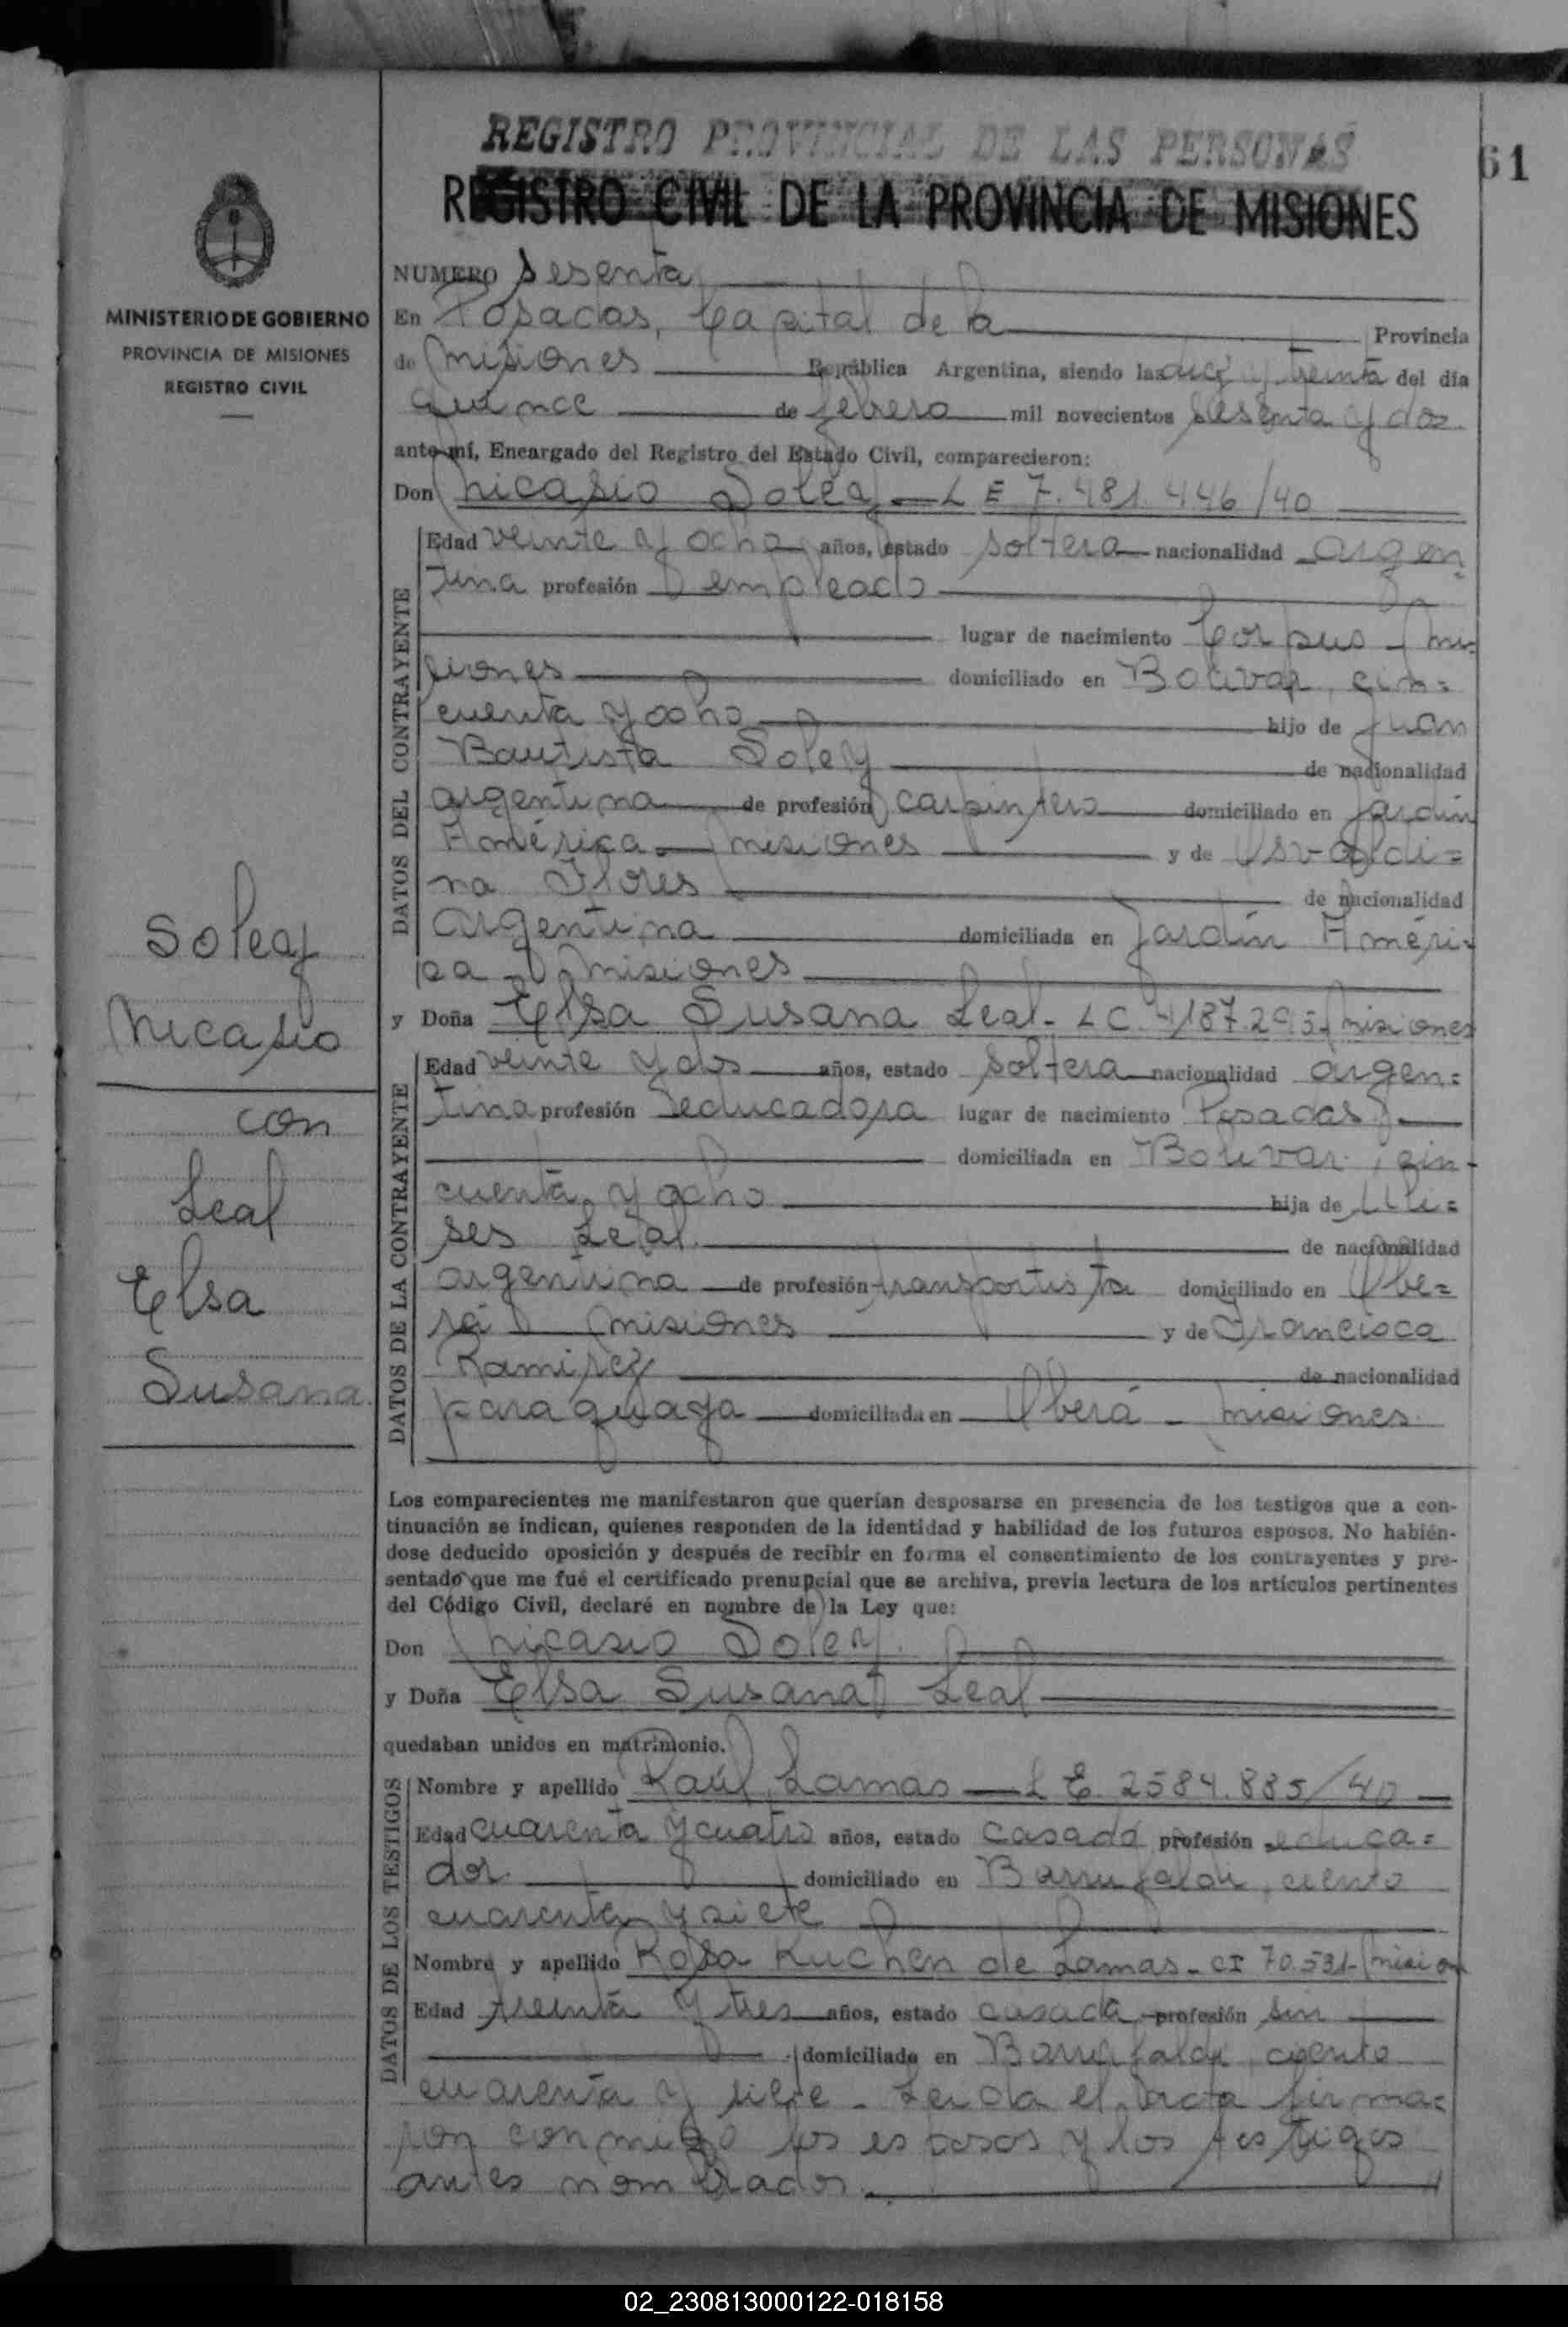 REGISTRO PROVINCIAL DE LAS PERSONAS
61
REGISTRO CIVIL DE LA PROVINCIA DE MISIONES
MINISTERIO DE GOBIERNO
PROVINCIA DE MISIONES
REGISTRO CIVIL
Soley
Nicasio
con
Leal
Elsa
Susana
NUMERO Sesenta
En Posadas, Capital de la Provincia
de Misiones República Argentina, siendo las diez y treinta del día
quince de febrero mil novecientos sesenta y dos
ante mí, Encargado del Registro del Estado Civil, comparecieron:
Don Nicasio Soley - L E 7.481.446/40
DATOS DEL CONTRAYENTE
Edad veinte y ocho años, estado soltera nacionalidad argen=
tina profesión empleado
lugar de nacimiento Corpus - Mi=
siones domiciliado en Bolivar, cin=
cuenta y ocho hijo de Juan
Bautista Soley de nacionalidad
argentina de profesión carpintero domiciliado en Jardín
América - Misiones y de Osvaldi=
na Flores de nacionalidad
argentina domiciliada en Jardín Améri=
ca - Misiones
y Doña Elsa Susana Leal - L C. 4187.295 - Misiones
DATOS DE LA CONTRAYENTE
Edad veinte y dos años, estado soltera nacionalidad argen=
tina profesión educadora lugar de nacimiento Posadas
domiciliada en Bolivar, cin-
cuenta y ocho hija de Uli=
ses Leal. de nacionalidad
argentina de profesión transportista domiciliado en Obe=
rá - Misiones y de Francisca
Ramirez de nacionalidad
paraguaya domiciliada en Oberá - Misiones.
Los comparecientes me manifestaron que querían desposarse en presencia de los testigos que a con-
tinuación se indican, quienes responden de la identidad y habilidad de los futuros esposos. No habién-
dose deducido oposición y después de recibir en forma el consentimiento de los contrayentes y pre-
sentado que me fué el certificado prenupcial que se archiva, previa lectura de los artículos pertinentes
del Código Civil, declaré en nombre de la Ley que:
Don Nicasio Soley.
y Doña Elsa Susana Leal
quedaban unidos en matrimonio.
DATOS DE LOS TESTIGOS
Nombre y apellido Raúl Lamas - L E. 2584.885/40
Edad cuarenta y cuatro años, estado casado profesión educa=
dor. domiciliado en Barrufaldi, ciento
cuarenta y siete
Nombre y apellido Rosa Kuchen de Lamas - CI 70.531 - Mision
Edad treinta y tres años, estado casada profesión sin
domiciliado en Barrufaldi, ciento
cuarenta y siete. Leida el acta firma=
ron conmigo los esposos y los testigos
antes nombrados.
02_230813000122-018158